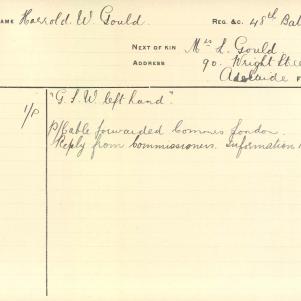 NAME Harrold. W. Gould. REG. &C. 48th Bat
NEXT OF KIN Mrs L. Gould
ADDRESS 90. Wright Stree
Adelaide
"G.S.W. left hand".
1/P P/Cable forwarded Commrs London.
Reply from Commissioners. Information